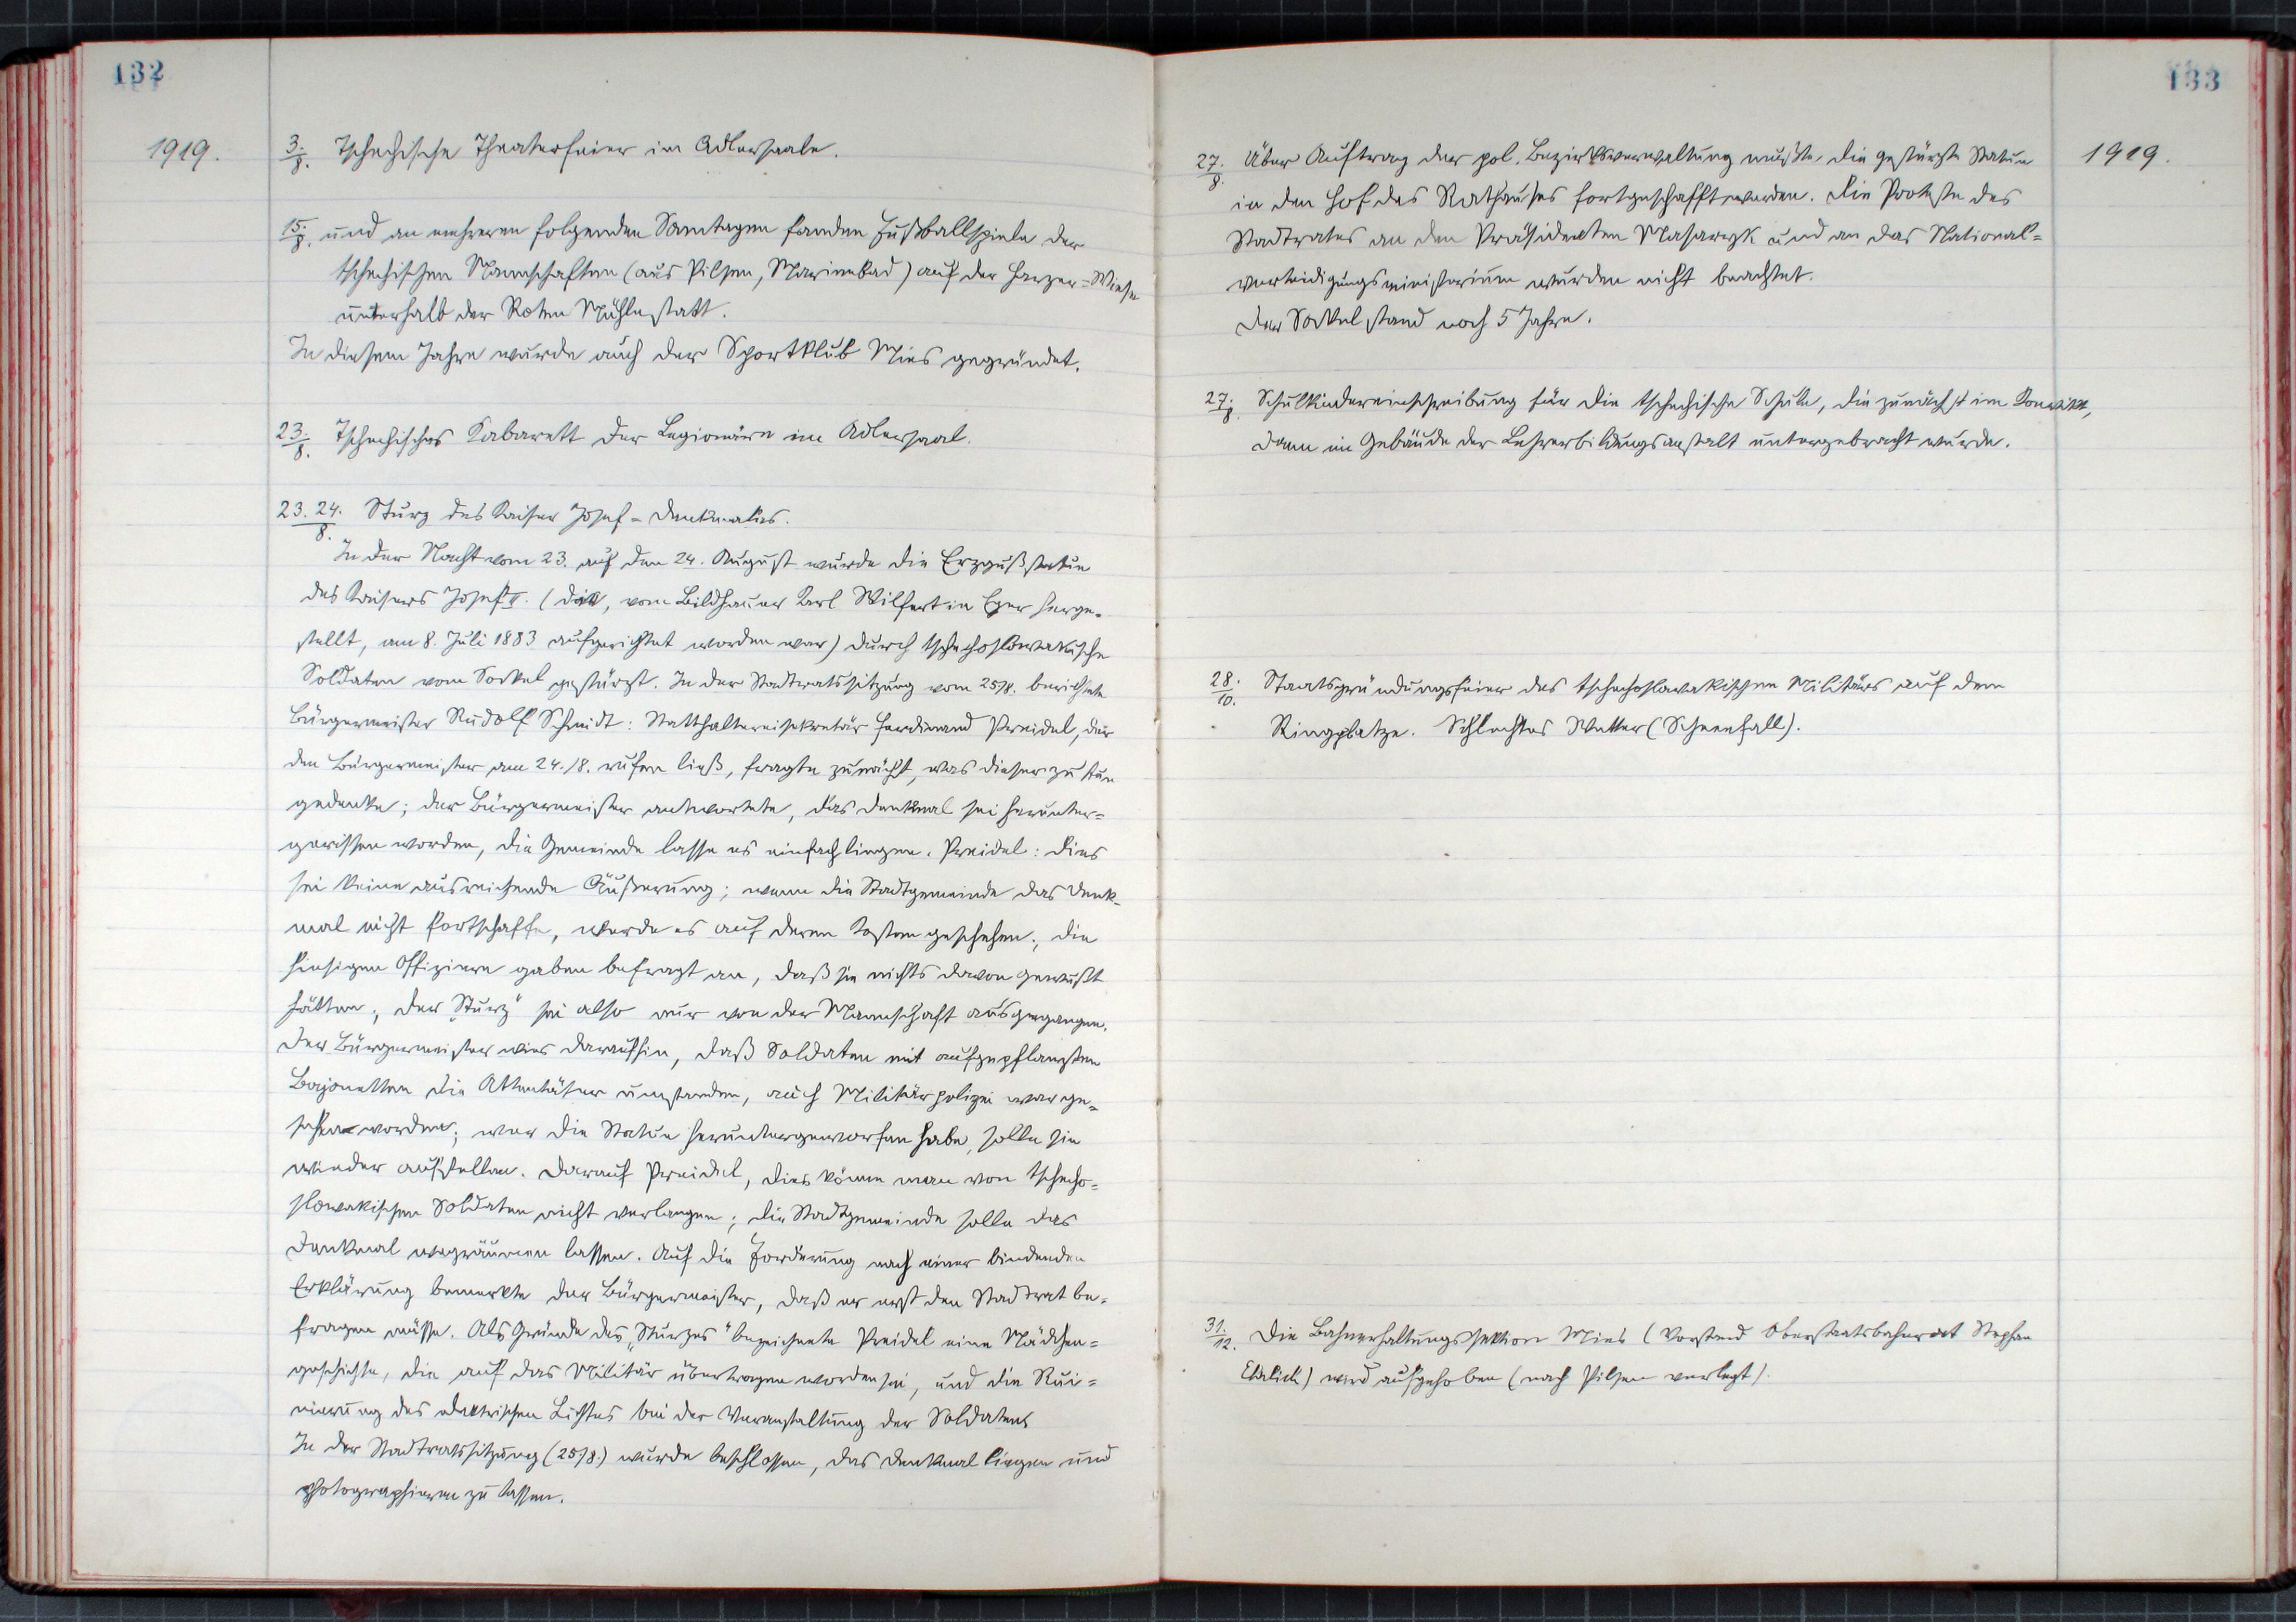 132
1919.
3./8. Tschechische Theaterfeier im Adlersaale.
15./8. und an mehreren folgenden Sonntagen fanden Fußballspiele der
tschechischen Mannschaften (aus Pilsen, Marienbad) auf der -Wiese
unterhalb der Roten Mühle statt.
In diesem Jahre wurde auch der Sportklub Mies gegründet.
23./8. Tschechisches Kabarett der Legionäre im Adlersaal.
23. 24./8. Sturz des Kaiser Josef-Denkmales.
In der Nacht vom 23. auf den 24. August wurde die Erzgußstatue
des Kaisers Josef II. (die, vom Bildhauer Karl Wilfert in Eger herge-
stellt, am 8. Juli 1883 aufgerichtet worden war) durch tschechoslowakische
Soldaten vom Sockel gestürzt. In der Stadtratssitzung vom 25/8. berichtete
Bürgermeister Rudolf Schmidt: Statthaltereisekretär Ferdinand Preidel, der
den Bürgermeister am 24./8. rufen ließ, fragte zunächst, was dieser zu tun
gedenke; der Bürgermeister antwortete, das Denkmal sei herunter-
gerissen worden, die Gemeinde lasse es einfach liegen. Preidel: Dies
sei keine ausreichende Äußerung; wenn die Stadtgemeinde das Denk-
mal nicht fortschaffe, werde es auf deren Kosten geschehen; die
hiesigen Offiziere gaben befragt an, daß sie nichts davon gewußt
hätten; der „Sturz" sei also nur von der Mannschaft ausgegangen.
Der Bürgermeister wies daraufhin, daß Soldaten mit aufgepflanzten
Bajonetten die Attentäter umstanden, auch Militärpolizei war ge-
sehen worden; wer die Statue heruntergeworfen habe, solle sie
wieder aufstellen. Darauf Preidel, dies könne man von tschecho-
slowakischen Soldaten nicht verlangen; die Stadtgemeinde solle das
Denkmal wegräumen lassen. Auf die Forderung nach einer bindenden
Erklärung bemerkte der Bürgermeister, daß er erst den Stadtrat be-
fragen müsse. Als Gründe des „Sturzes" bezeichnete Preidel eine Mädchen-
geschichte, die auf das Militär übertragen worden sei, und die Rui-
nierung des elektrischen Lichtes bei der Veranstaltung der Soldaten.
In der Stadtratssitzung (25/8.) wurde beschlossen, das Denkmal liegen und
photographieren zu lassen.
133
1919.
27./8. Über Auftrag der pol. Bezirksverwaltung mußte die gestürzte Statue
in den Hof des Rathauses fortgeschafft werden. Die Proteste des
Stadtrates an den Präsidenten Masaryk und an das National-
verteidigungsministerium wurden nicht beachtet.
Der Sockel stand noch 5 Jahre.
27./8. Schulkindereinschreibung für die tschechische Schule, die zunächst im Konvikt,
dann im Gebäude der Lehrerbildungsanstalt untergebracht wurde.
28./10. Staatsgründungsfeier des tschechoslowakischen Militärs auf dem
Ringplatze. Schlechtes Wetter (Schneefall).
31./12. Die Bahnerhaltungssektion Mies (Vorstand Oberstaatsbahnrat Stephan
Ehrlich) wird aufgehoben (nach Pilsen verlegt).